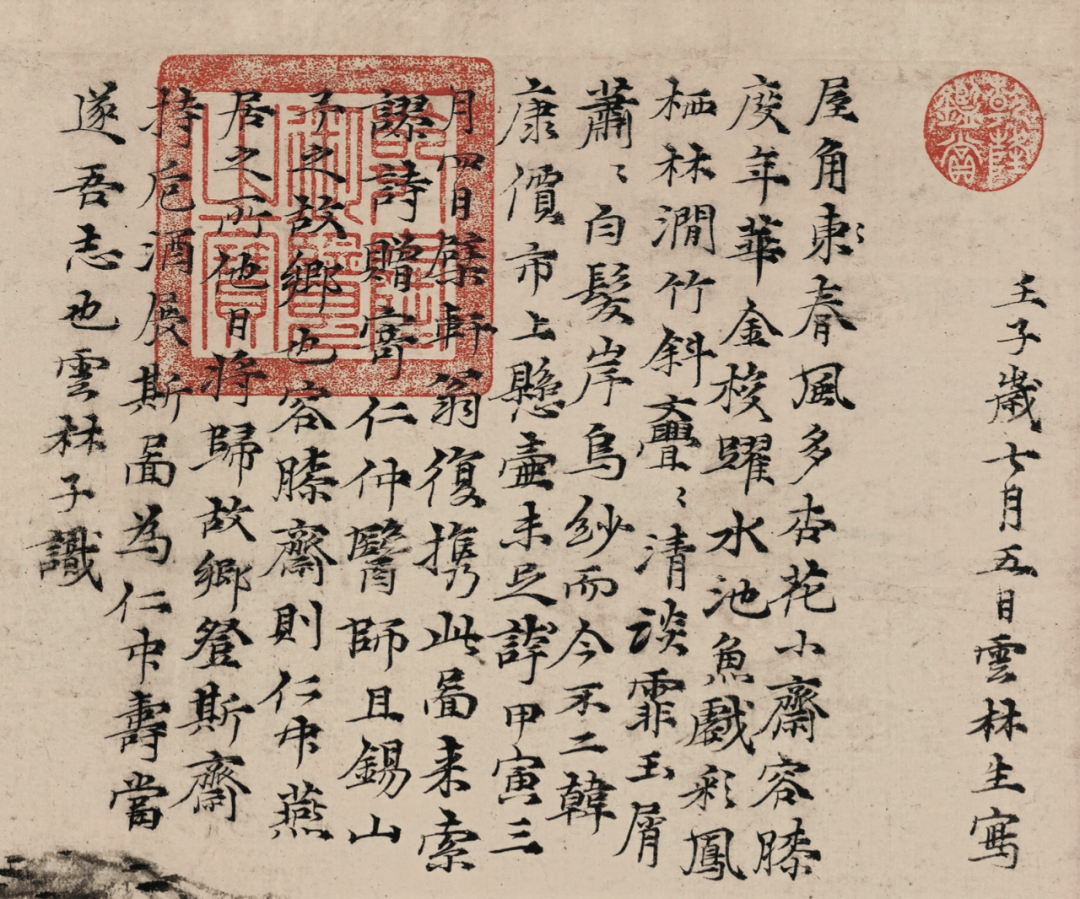 壬子歲七月五日雲林生寫
屋角東春風多杏花小齋容膝
度年華金梭躍水池魚戲彩鳳
栖林澗竹斜亹〻清談霏玉屑
蕭〻白髮岸烏紗而今不二韓
康價市上懸壺未足誇甲寅三
月四日檗軒翁復携此圖来索
謬詩贈寄仁仲醫師且錫山
予之故鄉也容膝齋則仁中燕
居之所他日将歸故鄉登斯齋
持卮酒展斯圖為仁中壽當
遂吾志也雲林子識
乾隆鑑賞